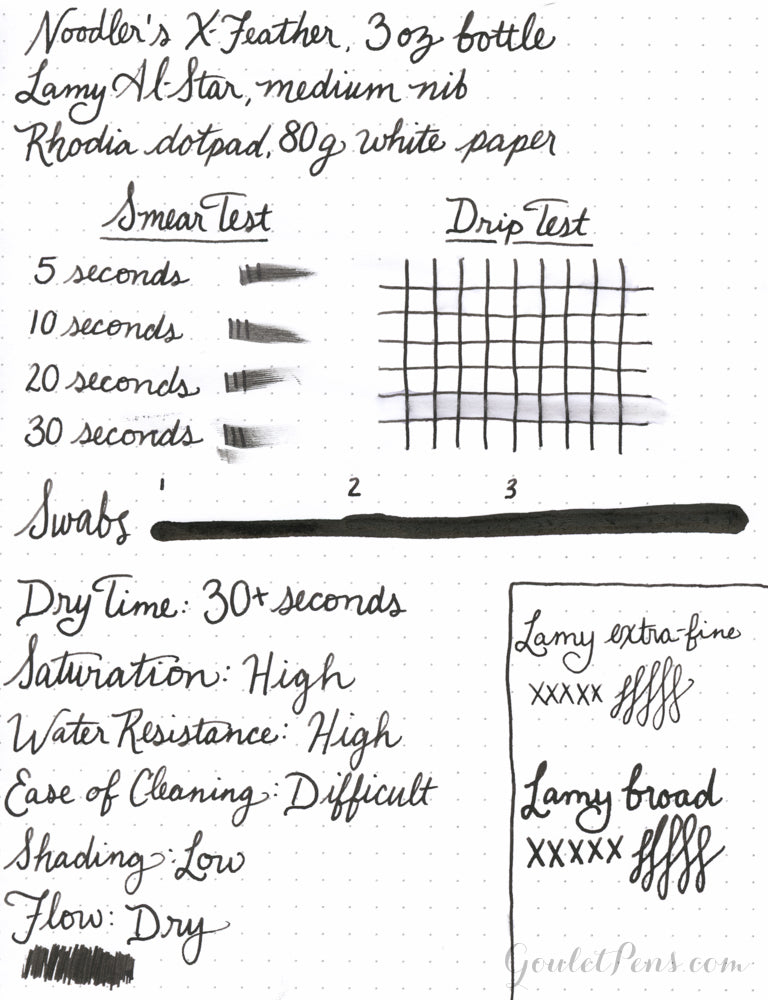 Noodler's X-Feather, 3 oz bottle
Lamy Al-Star, medium nib
Rhodia dotpad, 80g white paper
Smear Test
Drip Test
5 seconds
10 seconds
20 seconds
30 seconds
1 2 3
Swabs
Dry Time: 30+ seconds
Saturation: High
Water Resistance: High
Ease of Cleaning: Difficult
Shading: Low
Flow: Dry
Lamy extra-fine
xxxxx
Lamy broad
XXXXX
GouletPens.com